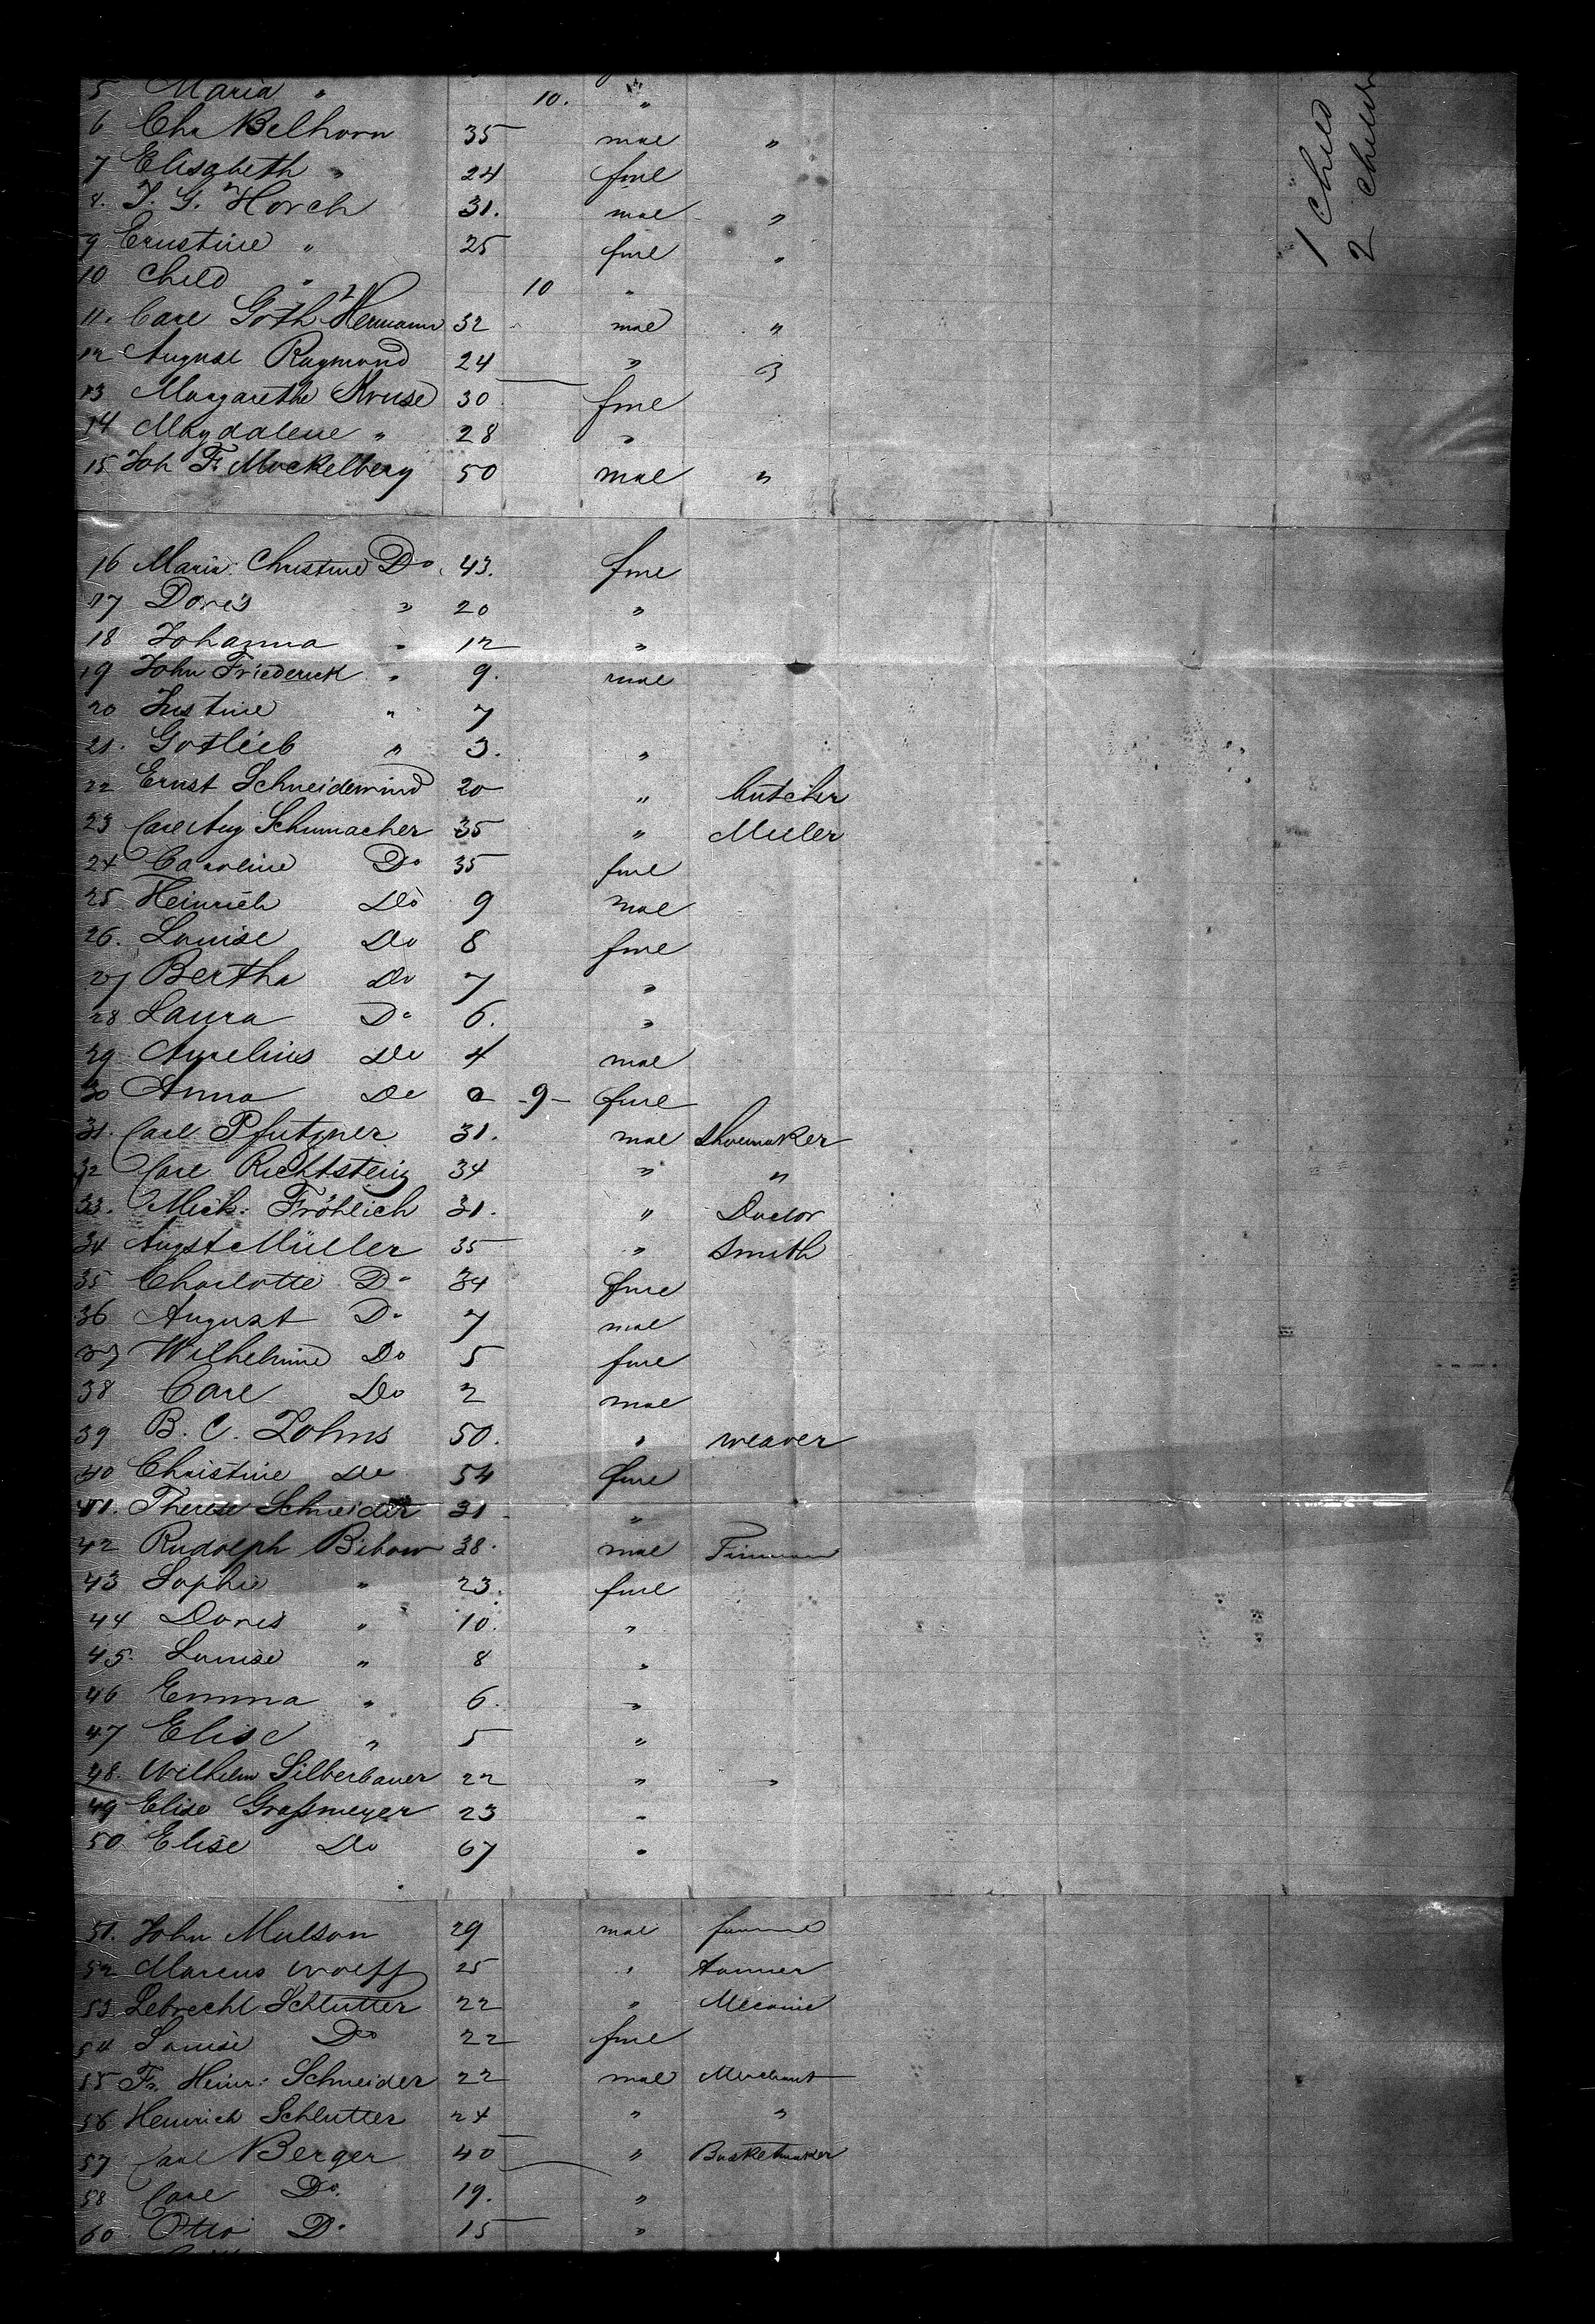 5 Maria " 10. "
6 Chr Belhorn 35 mal "
7 Elisabeth " 24 fml
8. J. G. Horch 31. mal "
9 Ernstine " 25 fml "
10 Child " 10 "
11. Carl Goth Hermann 32 mal "
12 August Raymond 24 " "
13 Margarethe Kruse 30 fml
14 Magdalene " 28 "
15 Joh Fr Mockelberg 50 mal "
1 Child
2 Child
16 Maria Christine Do 43. fml
17 Dores " 20 "
18 Johanna " 12 "
19 John Friederick " 9. mal
20 Justine " 7
21. Gotlieb " 3. "
22 Ernst Schneidewind 20 " butcher
23 Carl Aug Schumacher 35 " Miller
24 Caroline Do 35 fml
25 Heinrich Do 9 mal
26. Louise Do 8 fml
27 Bertha Do 7 "
28 Laura Do 6. "
29 Aurelius Do 4 mal
30 Anna Do 0 -9- fml
31. Carl Pfutzner 31. mal Shoemaker
32 Carl Richtsteig 34 " "
33. Mich: Fröhlich 31. " Doctor
34 Augst Müller 35 " Smith
35 Charlotte Do 34 fml
36 August Do 7 mal
37 Wilhelmine Do 5 fml
38 Carl Do 2 mal
39 B. C. Johns 50. " weaver
40 Christine Do 54 fml
41. Therese Schneider 31 "
42 Rudolph Bibow 38. mal
43 Sophie " 23. fml
44 Dores " 10. "
45. Louise " 8 "
46 Emma " 6. "
47 Elise " 5 "
48. Wilhelm Silberbauer 22 " "
49 Elise Graßmeyer 23 "
50 Elise Do 67 "
51. John Mulson 29 mal
52 Marcus Wolff 25 " tanner
53 Lebrecht Schlutter 22 " Mecanic
54 Louise Do 22 fml
55 Fr. Heinr: Schneider 22 mal Merchant
56 Heinrich Schlutter 24 " "
57 Carl Berger 40 " Basketmaker
58 Carl Do. 19. "
60 Otto Do 15 "